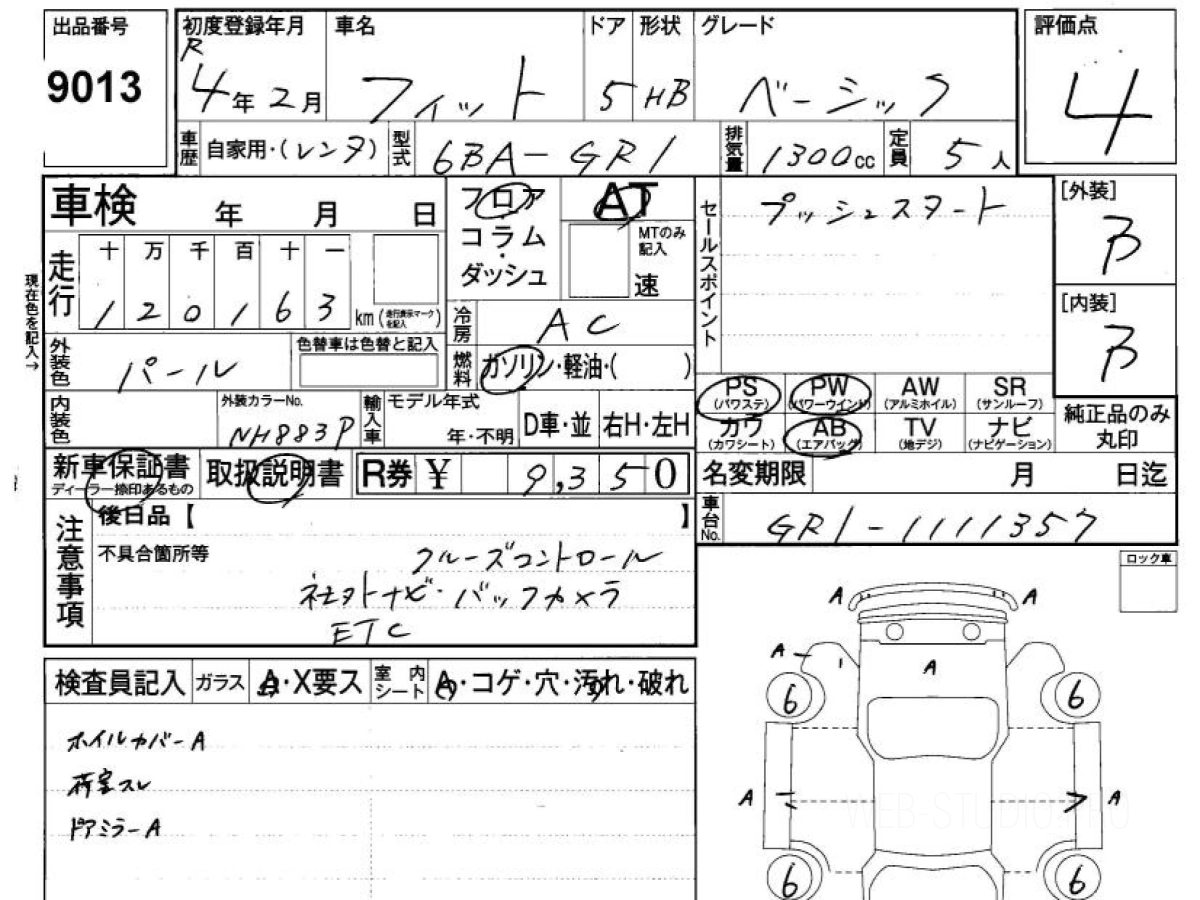 出品番号
9013
初度登録年月
R
4年2月
車名
フィット
ドア
5
形状
HB
グレード
ベーシック
評価点
4
車歴
自家用・(レンタ)
型式
6BA-GR1
排気量
1300cc
定員
5人
車検 年 月 日
フロア
コラム
・
ダッシュ
AT
MTのみ
記入
速
セールスポイント
プッシュスタート
[外装]
B
[内装]
B
現在色を記入→
走行
十 万 千 百 十 一
1 2 0 1 6 3 km(走行表示マークを記入)
冷房
AC
外装色
パール
色替車は色替と記入
燃料
ガソリン・軽油・( )
PS
(パワステ)
PW
(パワーウインド)
AW
(アルミホイル)
SR
(サンルーフ)
カワ
(カワシート)
AB
(エアバッグ)
TV
(地デジ)
ナビ
(ナビゲーション)
純正品のみ
丸印
内装色
外装カラーNo.
NH883P
輸入車
モデル年式
年・不明
D車・並
右H・左H
新車保証書
ディーラー捺印あるもの
取扱説明書
R券 ¥ 9,350
名変期限 月 日迄
車台No.
GR1-1111357
注意事項
後日品【 】
不具合箇所等
クルーズコントロール
社外ナビ・バックカメラ
ETC
ロック車
検査員記入
ガラス
A・X要ス
室内
シート
A・コゲ・穴・汚れ・破れ
ホイルカバーA
荷室スレ
ドアミラーA
A A
A
A
6 6
A A
6 6
WEB-STUDIO.PRO